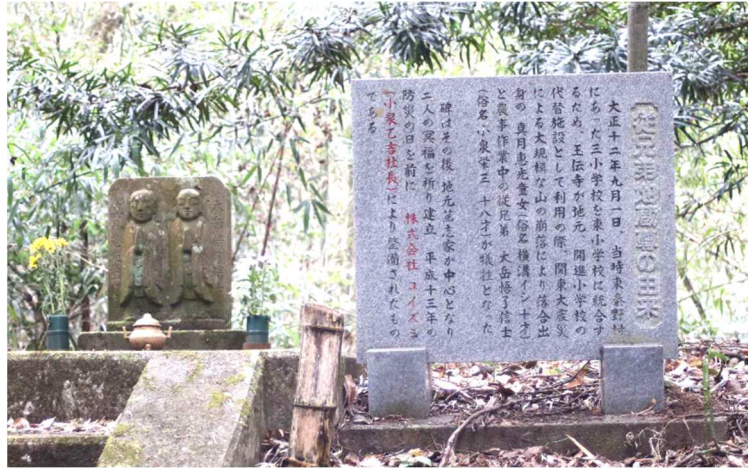 従兄弟地蔵尊の由来
大正十二年九月一日、当時東秦野村
にあった三小学校を東小学校に統合す
るため、玉伝寺が地元、開進小学校の
代替施設として利用の際、関東大震災
による大規模な山の崩落により落合出
身の真月恵光童女(俗名横溝イシ 十才)
と農事作業中の従兄弟 大岳悟了信士
(俗名小泉栄三 十八才)が犠牲となった
碑はその後、地元篤志家が中心となり
二人の冥福を祈り建立、平成十三年の
防災の日を前に 株式会社 コイズミ
(小泉乙吉社長)により整備されたもの
である